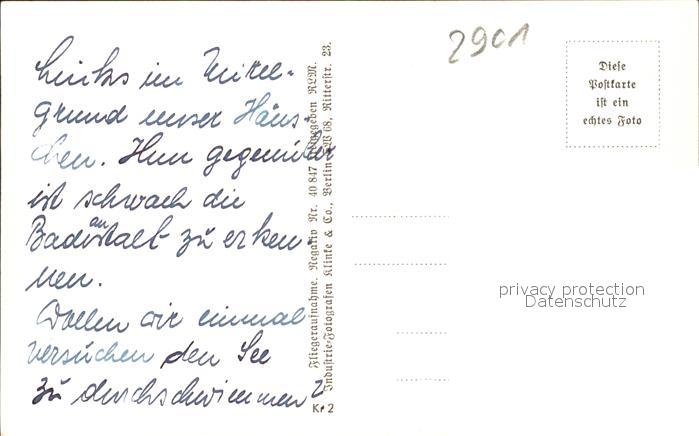 Links im Mittel-
grund unser Häus-
chen. Ihm gegenüber
ist schwach die
Badeanstalt zu erken-
nen.
Wollen wir einmal
versuchen den See
zu durchschwimmen?
Fliegeraufnahme. Negativ Nr. 40 847 freigegeben RLM.
Industrie-Fotografen Klinke & Co., Berlin W 68, Ritterstr. 23.
Kr 2
2901
Diese
Postkarte
ist ein
echtes Foto
privacy protection
Datenschutz